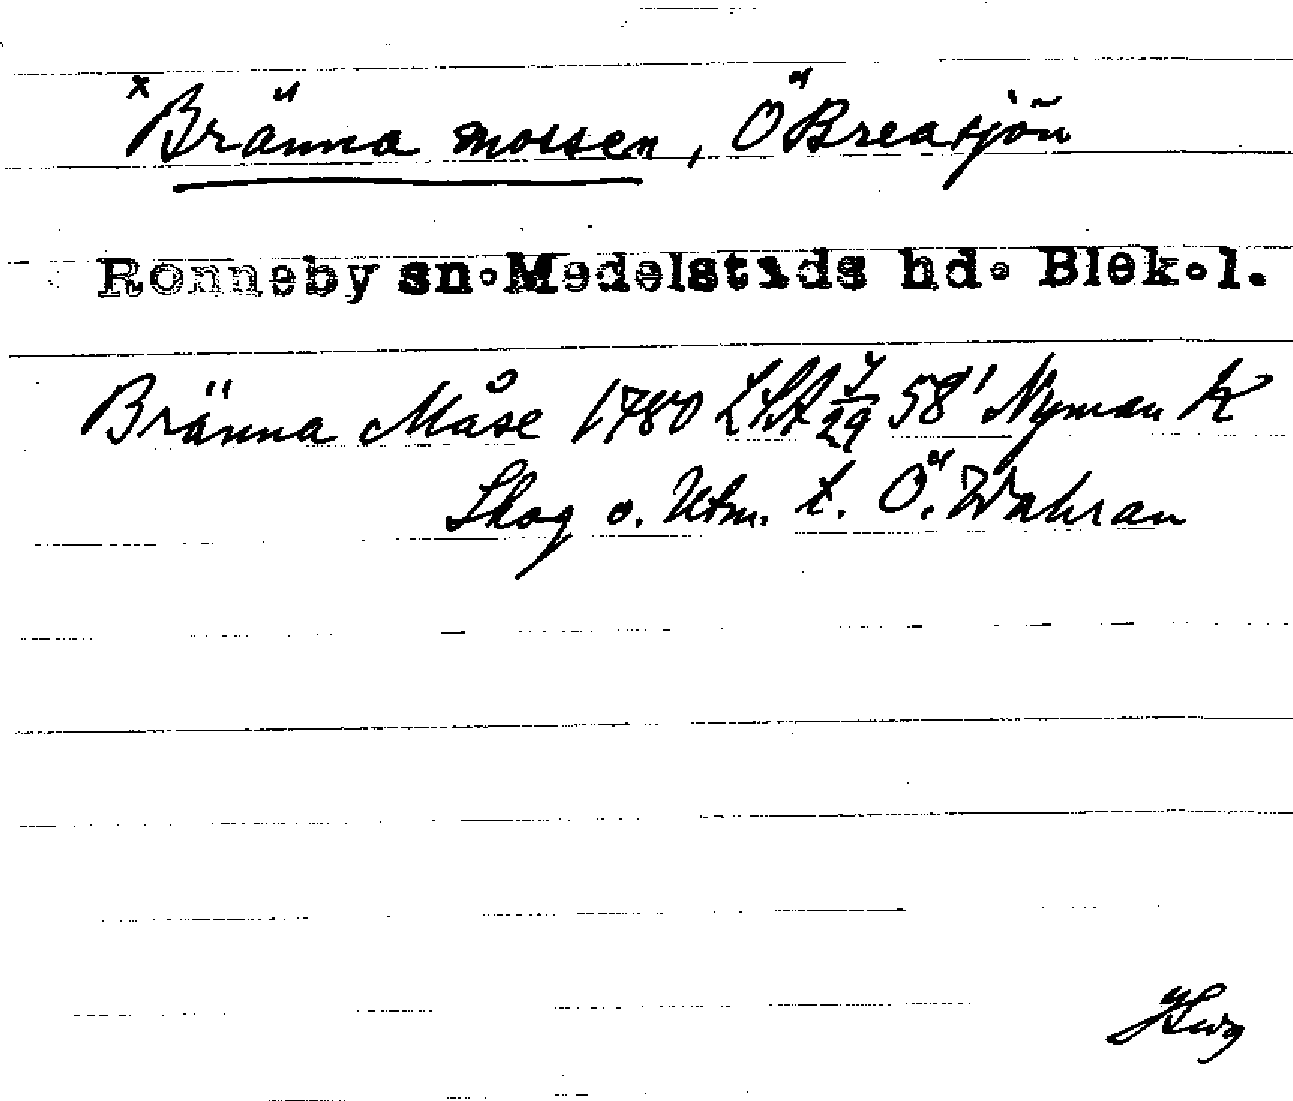 x Bränna mossen, Ö Breasjön
Ronneby sn. Medelstads hd. Blek. l.
Bränna Måse 1780 LSA 7/29 58' Nyman K
Skog o. Utm. t. Ö. Wahran